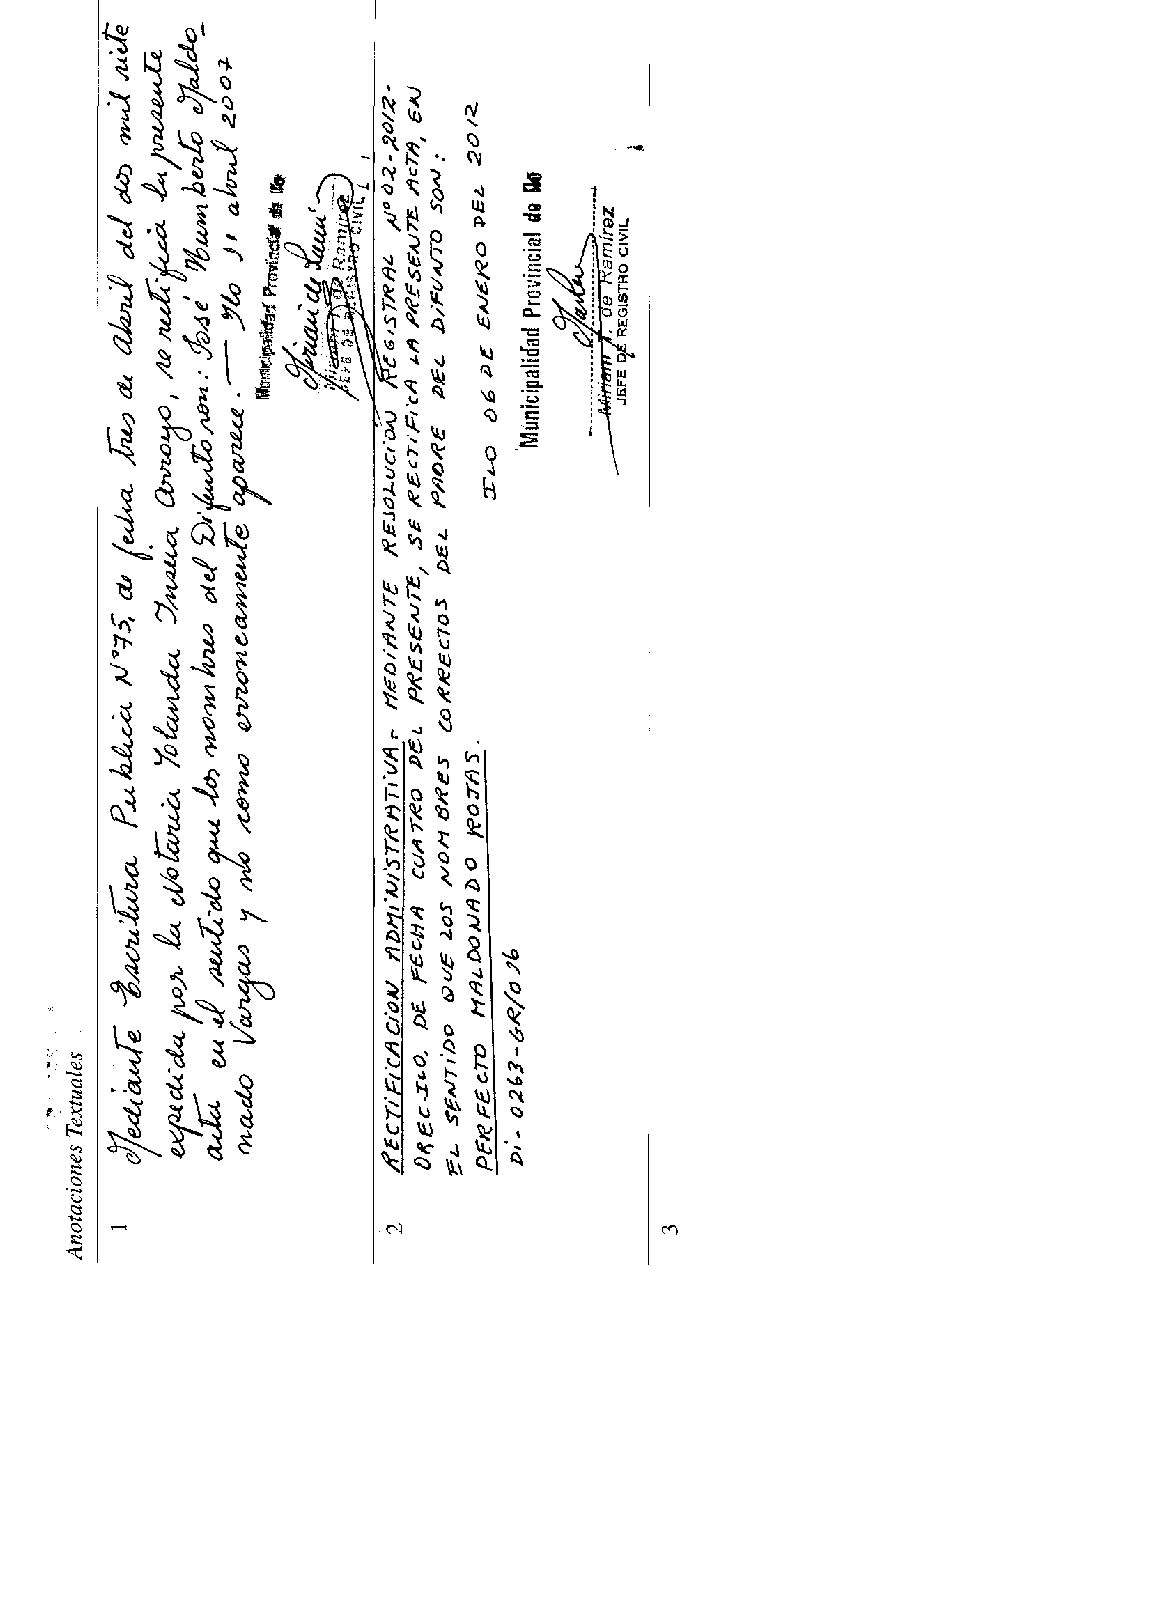 Anotaciones Textuales
1
Mediante Escritura Publica Nº75, de fecha tres de Abril del dos mil siete
expedida por la Notaria Yolanda Insua Arroyo, se rectifica la presente
acta en el sentido que los nombres del Difunto son: José Humberto Maldo-
nado Vargas y no como erroneamente aparece. — Ilo 11 abril 2007
Municipalidad Provincial de Ilo
de Ramirez
JEFE DE REGISTRO CIVIL
2
RECTIFICACION ADMINISTRATIVA.- MEDIANTE RESOLUCION REGISTRAL Nº 02-2012-
OREC-ILO, DE FECHA CUATRO DEL PRESENTE, SE RECTIFICA LA PRESENTE ACTA, EN
EL SENTIDO QUE LOS NOMBRES CORRECTOS DEL PADRE DEL DIFUNTO SON:
PERFECTO MALDONADO ROJAS.
ILO 06 DE ENERO DEL 2012
Di- 0263-GR/096
Municipalidad Provincial de Ilo
Miriam T. de Ramirez
JEFE DE REGISTRO CIVIL
3